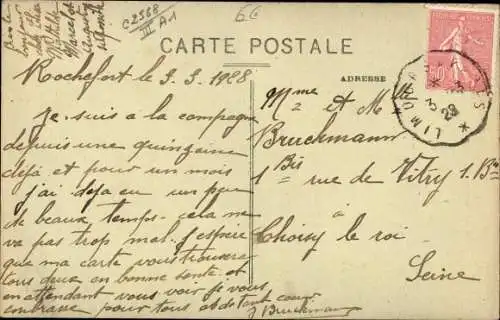 C 2568
III A1
CARTE POSTALE
ADRESSE
Rochefort le 3.3.1928
Je suis à la campagne
depuis une quinzaine
déjà et pour un mois
j'ai déja eu un peu
de beaux temps. cela ne
va pas trop mal. J'espère
que ma carte vous trouvera
tous deux en bonne santé. et
en attendant vous voir je vous
embrasse pour tous et de tout coeur
J Bruckmann
Mme et Mlle
Bruckmann
1 Bis rue de Vitry 1. Bis
à
Choisy le roi
Seine